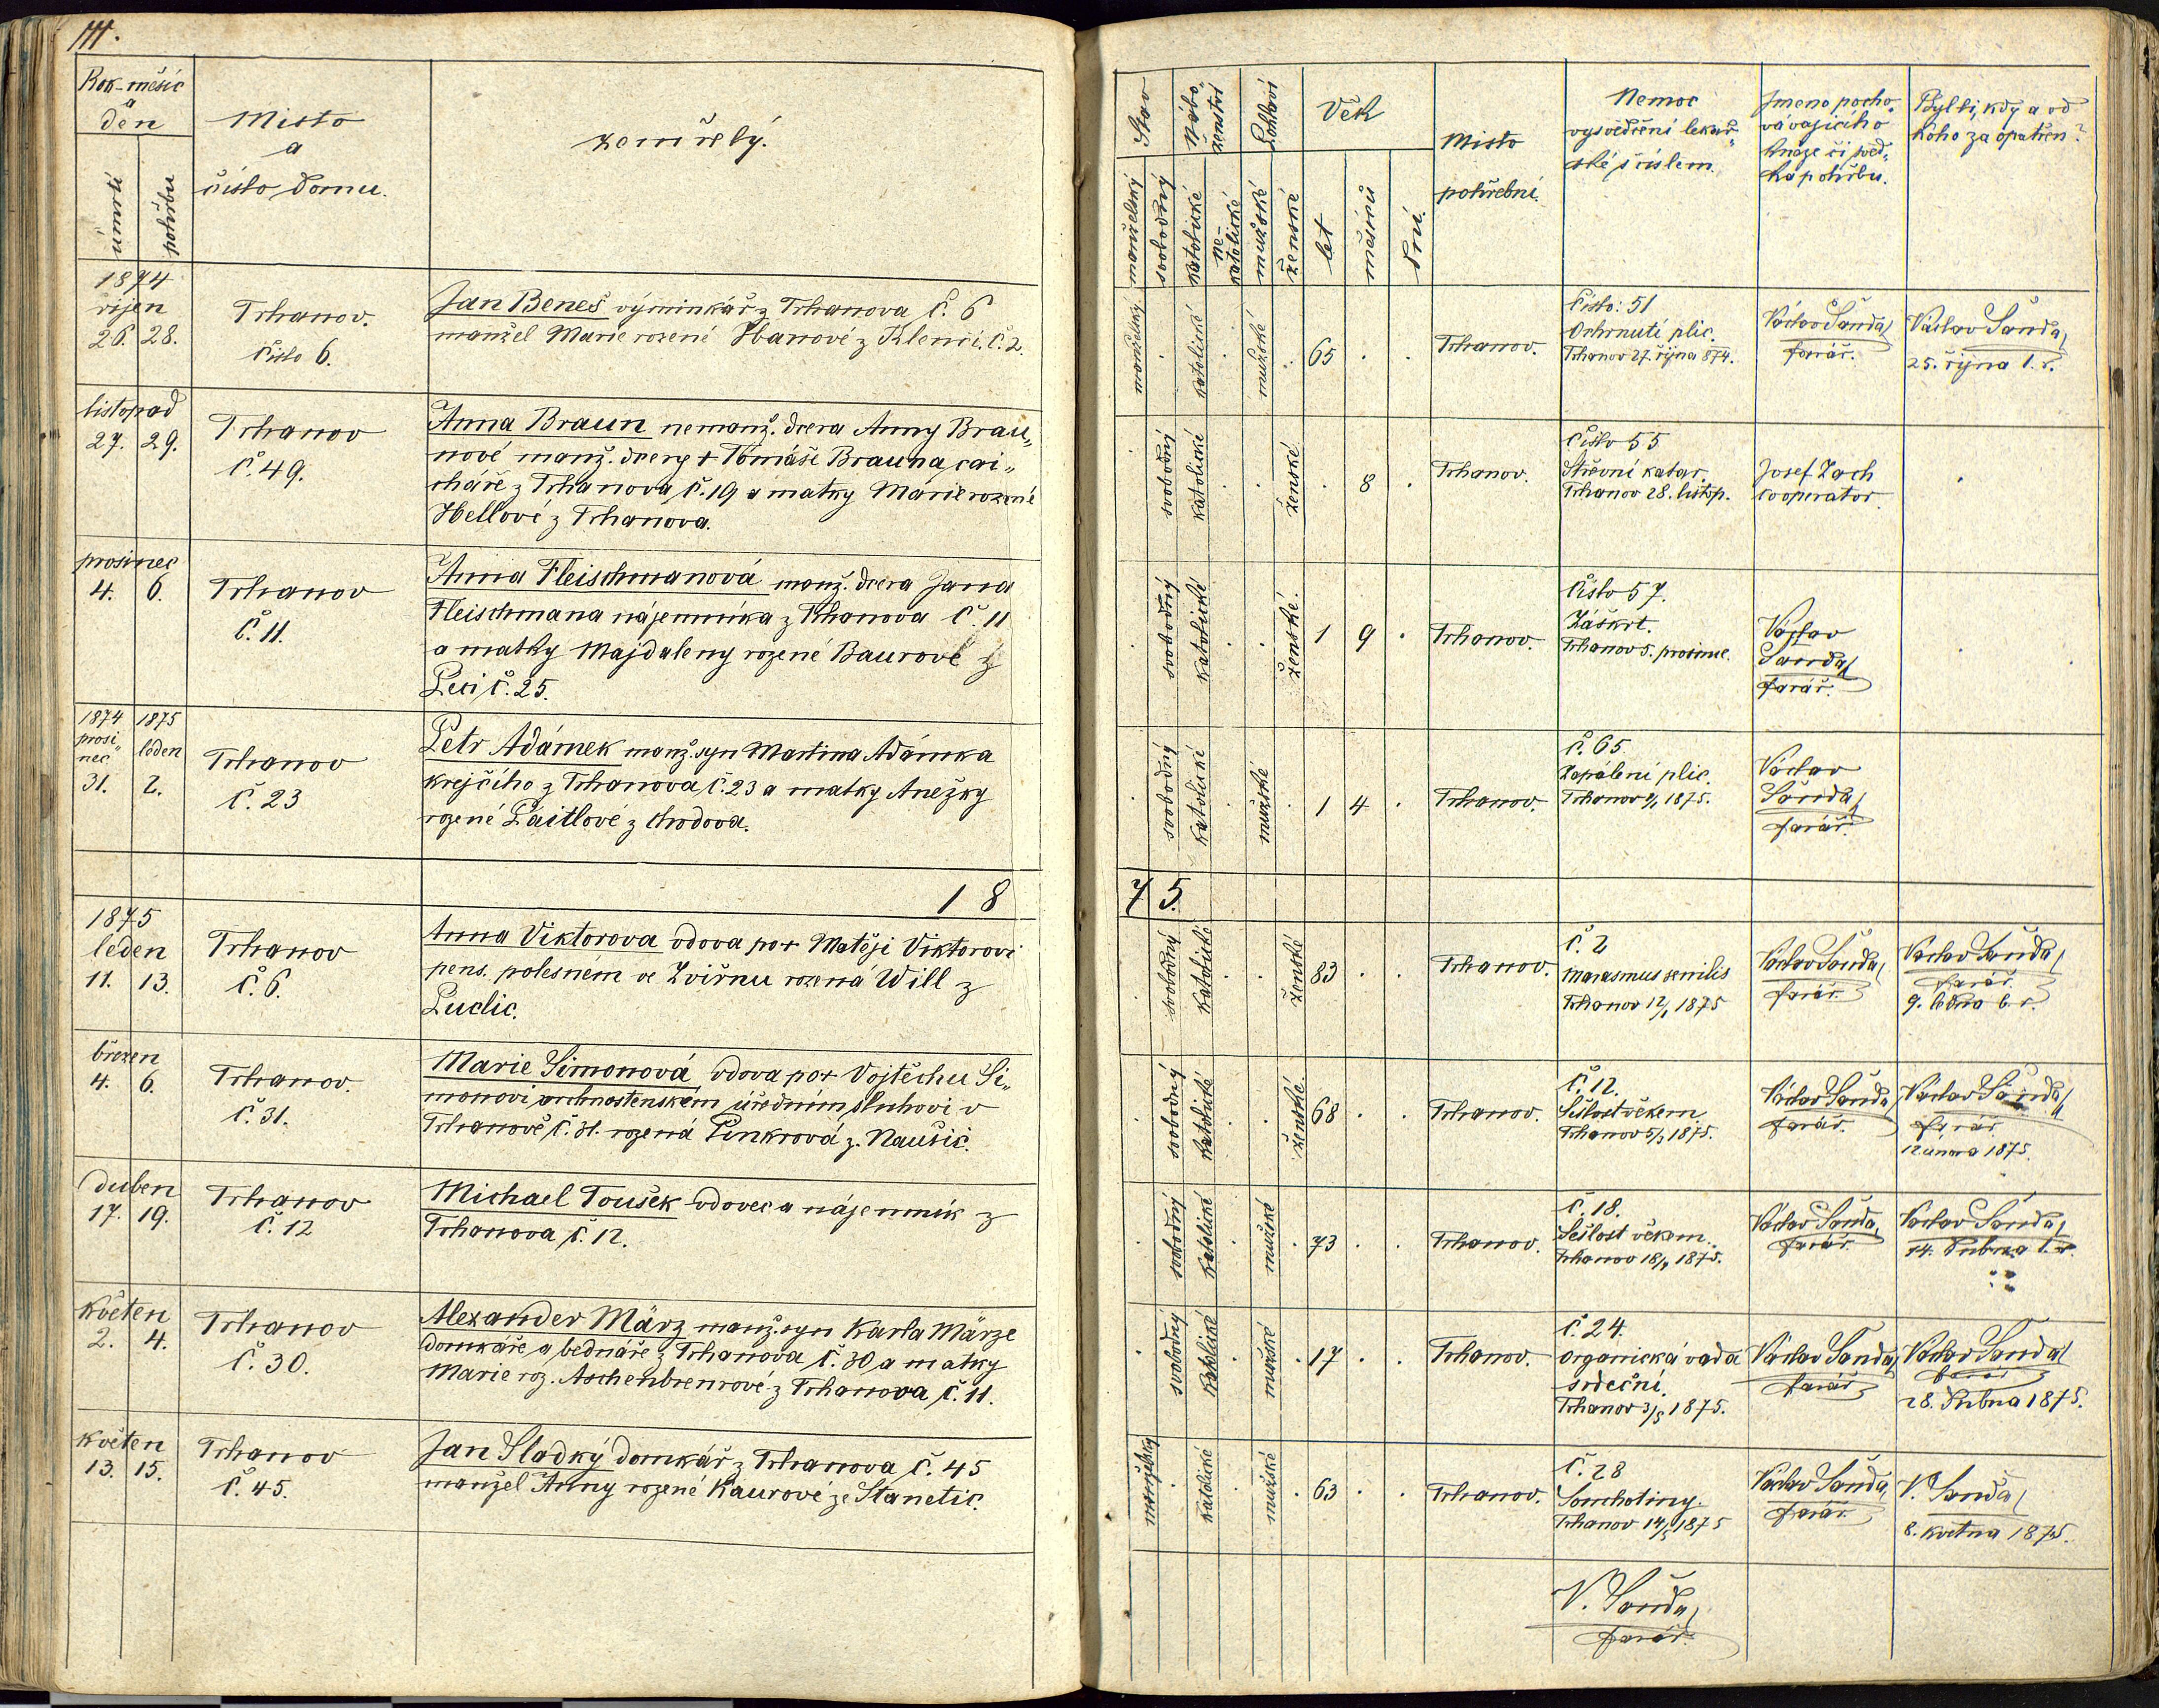 111.
Rok-měsíc
a
den
úmrtí
pohřbu
Místo
a
číslo domu.
zemřelý.
Stav
manželský
svobodný
Nábo-
ženství
katolické
ne-
katolické
Pohlaví
mužské
ženské
Věk
let
měsíců
dní.
Místo
pohřební.
Nemoc
vysvědčení lekař-
ské s číslem.
Jmeno pocho-
vávajícího
kněze či sved-
ka pohřbu.
Byl li, kdy a od
koho za opatřen?
1874
říjen
26. 28.
Trhanov.
číslo 6.
Jan Beneš výminkář z Trhanova č. 6
manžel Marie rozené Ibanové z Klenčí, č. 2.
manželský . katolické . mužské . 65 . .
Trhanov.
Číslo: 51
Ochrnutí plic.
Trhanov 27. října 874.
Václav Šanda,
farář.
Václav Šanda,
25. října l. r.
listopad
27. 29.
Trhanov
č. 49.
Anna Braun nemanž. dcera Anny Brau-
nové manž. dcery + Tomáše Brauna, cai-
cháře z Trhanova, č. 19 a matky Marie rozené
Hellové z Trhanova.
. svobodný katolické . . ženské . 8 .
Trhanov.
Číslo 55
Střevní katar.
Trhanov 28. listop.
Josef Zach
cooperator
.
prosinec
4. 6.
Trhanov
č. 11.
Anna Fleischmanová manž. dcera Jana
Fleischmana nájemníka z Trhanova č. 11
a matky Majdaleny rozené Baurové z
Peci č. 25.
. svobodný katolické . . ženské. 1 9 .
Trhanov.
Číslo 57.
Záškrt.
Trhanov 5. prosince.
Václav
Šanda,
farář.
.
1874 1875
prosi-
nec leden
31. 2.
Trhanov
č. 23
Petr Adámek manž. syn Martina Adámka
krejčího z Trhanova č. 23 a matky Anežky
rozené Paitlové z Chodova.
. svobodný katolické . mužské . 1 4 .
Trhanov.
Č. 65.
Zapálení plic.
Trhanov 2/1 1875.
Václav
Šanda,
farář.
18 75.
1875
leden
11. 13.
Trhanov
č. 6.
Anna Viktorova vdova po + Matěji Viktorovi
pens. polesném ve Zvířnu rozená Will z
Luclic.
. svobodný katolické . . ženské 83 . .
Trhanov.
Č. 2
Marasmus senilis
Trhanov 12/1 1875
Václav Šanda,
farář.
Václav Šanda,
farář.
9. ledna b. r.
březen
4. 6.
Trhanov.
č. 31.
Marie Simonová, vdova po + Vojtěchu Si-
monovi vrchnostenském úředním sluhovi v
Trhanově č. 31. rozená Pinkrová z. Naušic.
. svobodný katolické . . ženské 68 . .
Trhanov.
Č. 12.
Sešlost věkem
Trhanov 5/3 1875.
Václav Šanda
farář.
Václav Šanda,
farář
12 února 1875.
duben
17. 19.
Trhanov
č. 12
Michael Toušek vdovec a nájemník z
Trhanova č. 12.
. svobodný katolické . mužské . 73 . .
Trhanov.
Č. 18.
Sešlost věkem.
Trhanov 18/4 1875.
Václav Šanda,
farář
Václav Šanda,
14. dubna l. r.
květen
2. 4.
Trhanov
č. 30.
Alexander März manž. syn Karla Märze
domkáře a bednáře z Trhanova č. 30 a matky
Marie roz. Aschenbrenrové z Trhanova, č. 11.
. svobodný katolické . mužské . 17 . .
Trhanov.
Č. 24.
organická vada
srdeční.
Trhanov 3/5 1875.
Václav Šanda,
farář
Václav Šanda,
farář
28. dubna 1875.
květen
13. 15.
Trhanov
č. 45.
Jan Sladký domkář z Trhanova č. 45
manžel Anny rozené Kaurové ze Stanetic.
manželský . katolické . mužské . 63 . .
Trhanov.
Č. 28
Souchotiny.
Trhanov 14/5 1875
Václav Šanda,
farář
V. Šanda,
8. května 1875.
V. Šanda,
farář.